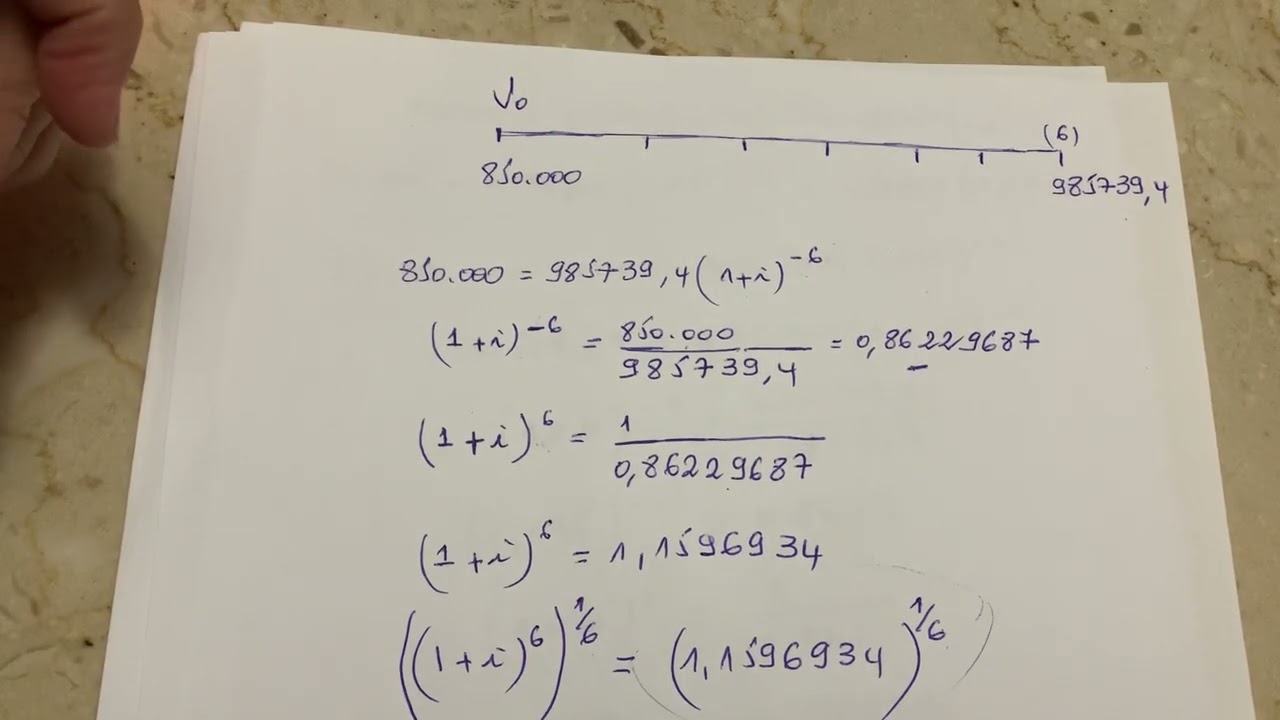 V₀
(6)
850.000 985739,4
850.000 = 985739,4 (1+i)⁻⁶
(1+i)⁻⁶ = 850.000 / 985739,4 = 0,86229687
(1+i)⁶ = 1 / 0,86229687
(1+i)⁶ = 1,1596934
((1+i)⁶)^1/6 = (1,1596934)^1/6